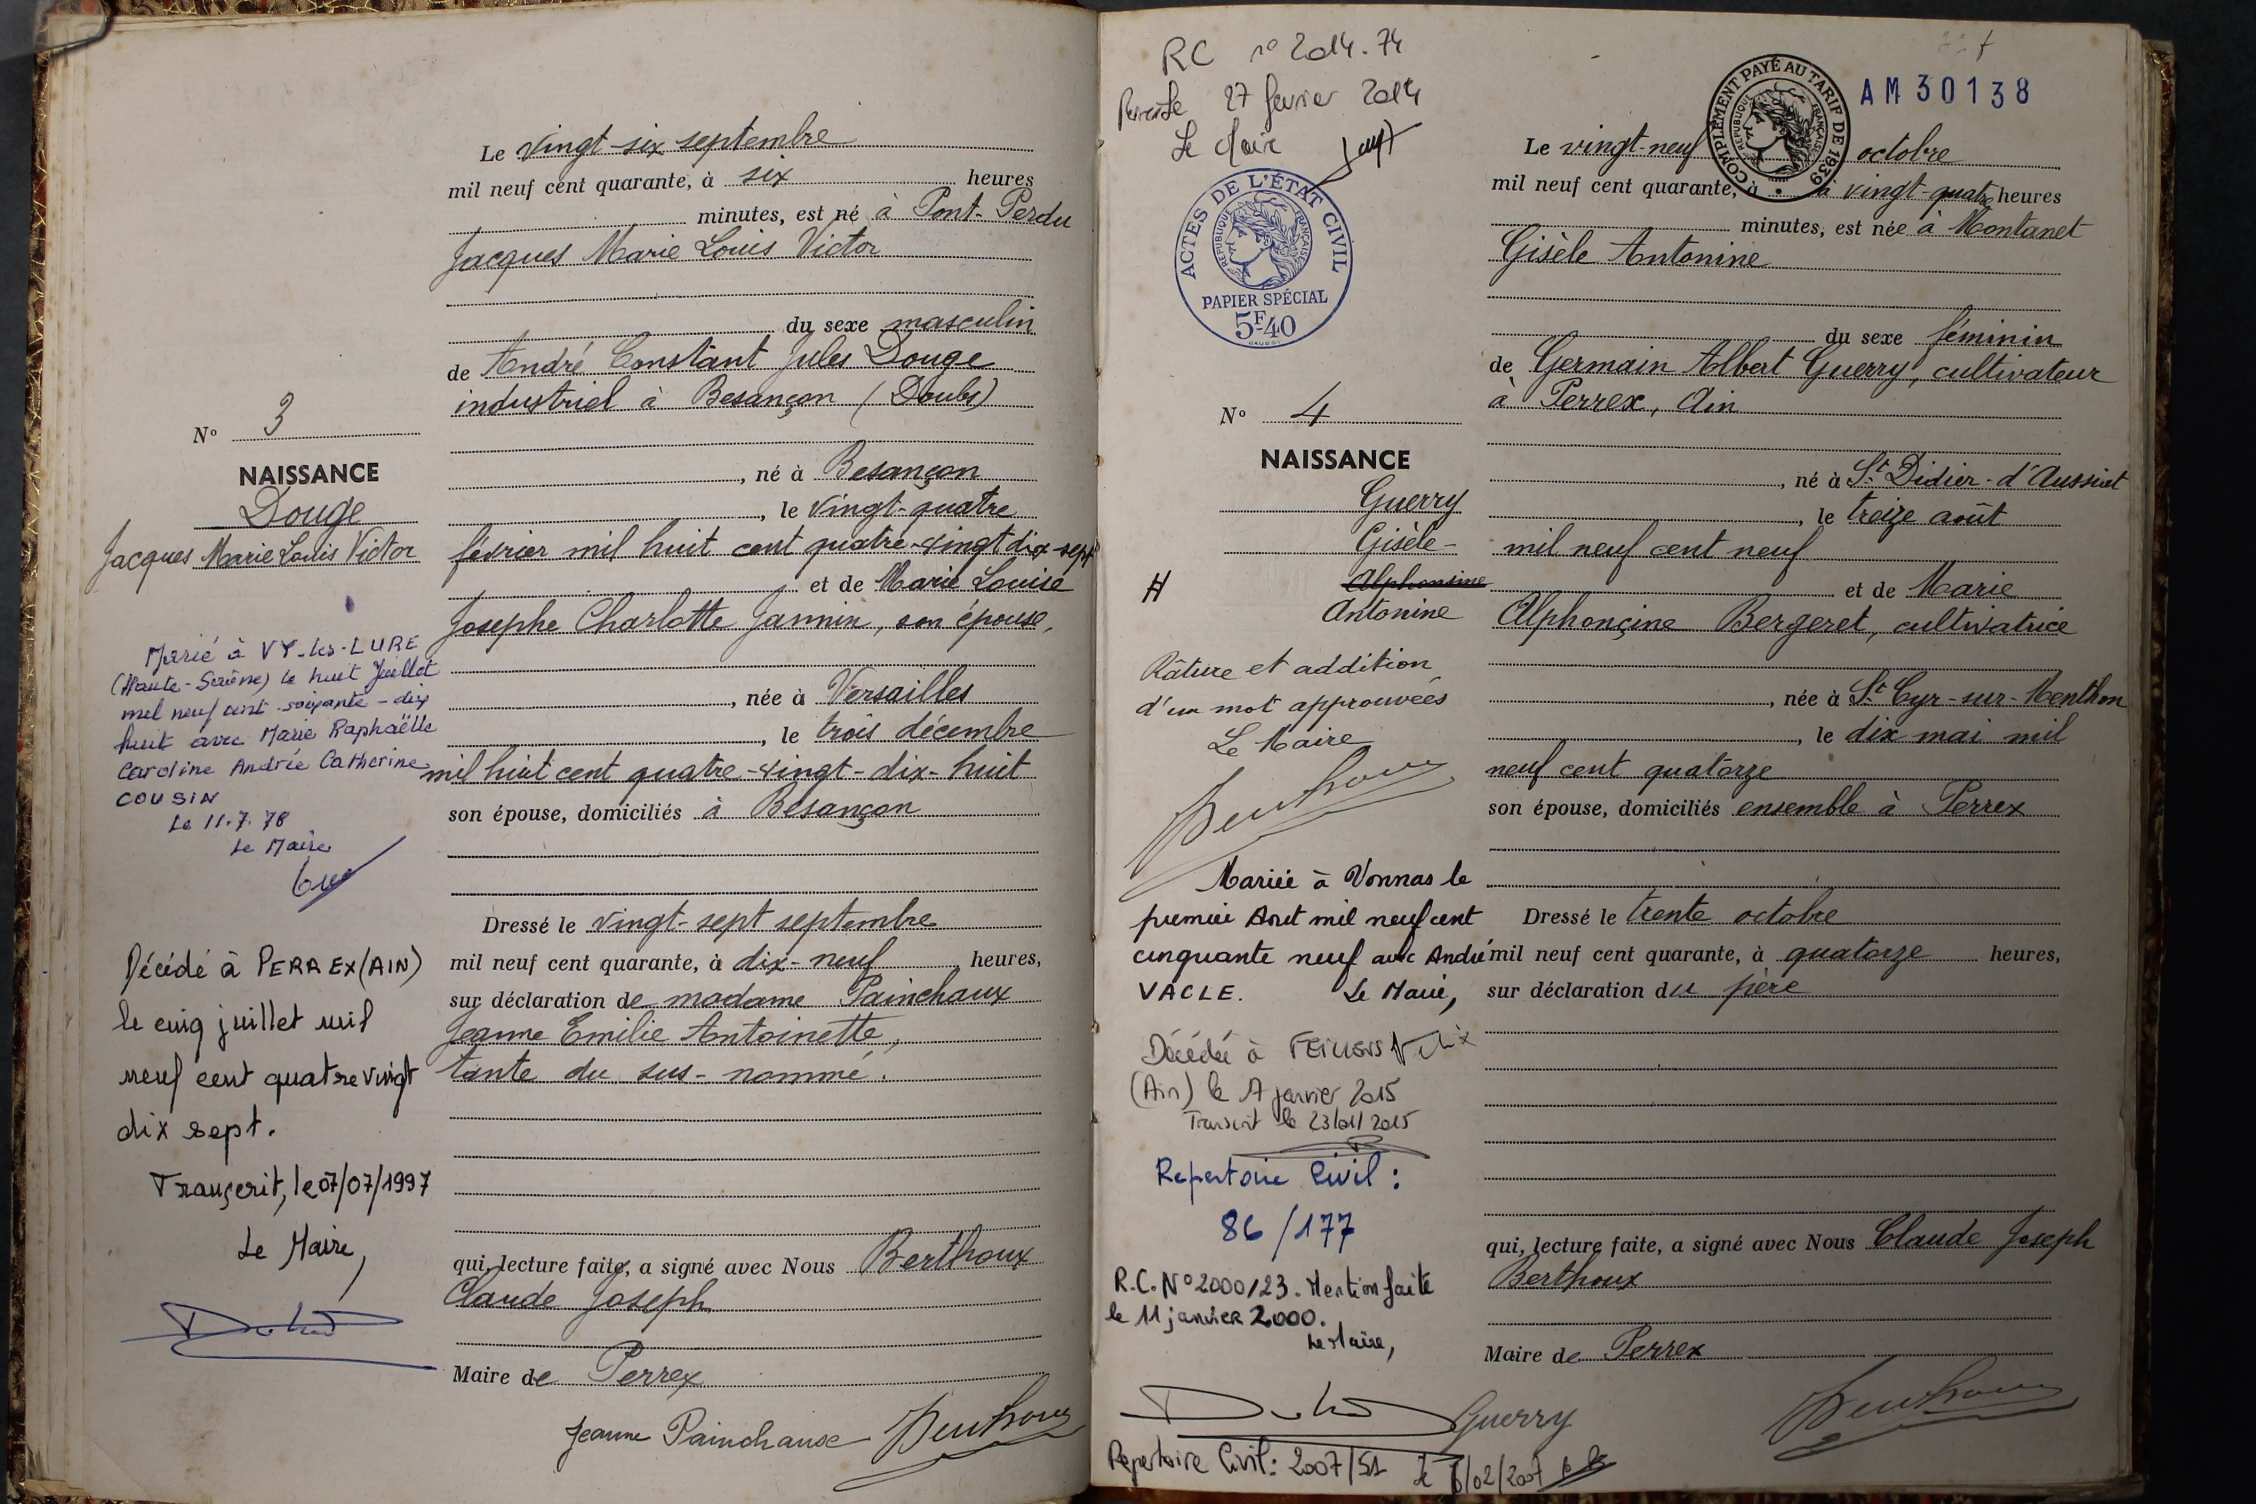 Le vingt-six septembre
mil neuf cent quarante, à six heures
minutes, est né à Pont-Perdu
Jacques Marie Louis Victor
du sexe masculin
de André Constant Jules Douge
industriel à Besançon (Doubs)
N° 3
NAISSANCE
Douge
Jacques Marie Louis Victor
, né à Besançon
, le vingt-quatre
février mil huit cent quatre-vingt dix-sept
et de Marie Louise
Josephe Charlotte Jannin, son épouse,
, née à Versailles
, le trois décembre
mil huit cent quatre-vingt-dix-huit
son épouse, domiciliés à Besançon
Marié à VY-les-LURE
(Haute-Saône) le huit Juillet
mil neuf cent soixante-dix
huit avec Marie Raphaëlle
Caroline Andrée Catherine
COUSIN
Le 11.7.78
Le Maire
Dressé le vingt-sept septembre
mil neuf cent quarante, à dix-neuf heures,
sur déclaration de madame Painchaux
Jeanne Emilie Antoinette,
tante du sus-nommé.
Décédé à PERREX (AIN)
le cinq juillet mil
neuf cent quatre vingt
dix sept.
Transcrit, le 07/07/1997
Le Maire,
qui, lecture faite, a signé avec Nous Berthoux
Claude Joseph
Maire de Perrex
Jeanne Painchaux
RC n° 2014.74
27 février 2014
Le Maire
ACTES DE L'ÉTAT CIVIL
RÉPUBLIQUE FRANÇAISE
PAPIER SPÉCIAL
5F40
COMPLÉMENT PAYÉ AU TARIF DE 1939
RÉPUBLIQUE FRANÇAISE
AM30138
Le vingt-neuf octobre
mil neuf cent quarante, à à vingt-quatre heures
minutes, est née à Montanet
Gisèle Antonine
du sexe féminin
de Germain Albert Guerry, cultivateur
à Perrex, Ain
N° 4
NAISSANCE
Guerry
Gisèle-
Alphonsine
Antonine
, né à St Didier-d'Aussiat
, le treize août
mil neuf cent neuf
et de Marie
Alphonçine Bergeret, cultivatrice
, née à St Cyr-sur-Menthon
, le dix mai mil
neuf cent quatorze
son épouse, domiciliés ensemble à Perrex
Râture et addition
d'un mot approuvées
Le Maire
Mariée à Vonnas le
premier Aout mil neuf cent
cinquante neuf avec André
VACLE. Le Maire,
Dressé le trente octobre
mil neuf cent quarante, à quatorze heures,
sur déclaration du père
Décédée à FEILLENS
(Ain) le 17 janvier 2015
Transcrit le 23/01/2015
Repertoire Civil :
86/177
R.C. N° 2000/23. Mention faite
le 11 janvier 2000.
Le Maire,
qui, lecture faite, a signé avec Nous Claude Joseph
Berthoux
Maire de Perrex
Guerry
Repertoire Civil : 2007/51